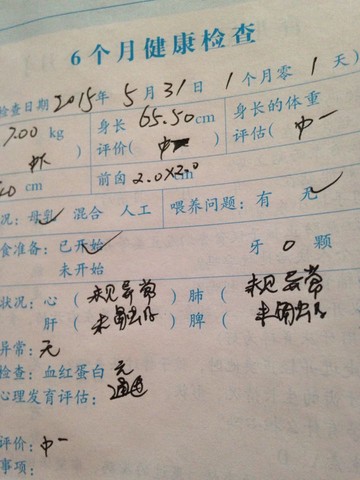 6个月健康检查
检查日期 2015年 5月 31日 1个月零 1天)
7.00 kg 身长 65.50cm 身长的体重
) 评价( 中 ) 评估( 中一
cm 前囟 2.0×2.0 cm
况: 母乳✓ 混合 人工 喂养问题: 有 无✓
食准备: 已开始✓ 牙 0 颗
未开始
状况: 心( 未见异常 ) 肺( 未见异常
肝( 未触出 ) 脾( 未触出
异常: 无
检查: 血红蛋白 无
心理发育评估:
评价: 中一
事项: